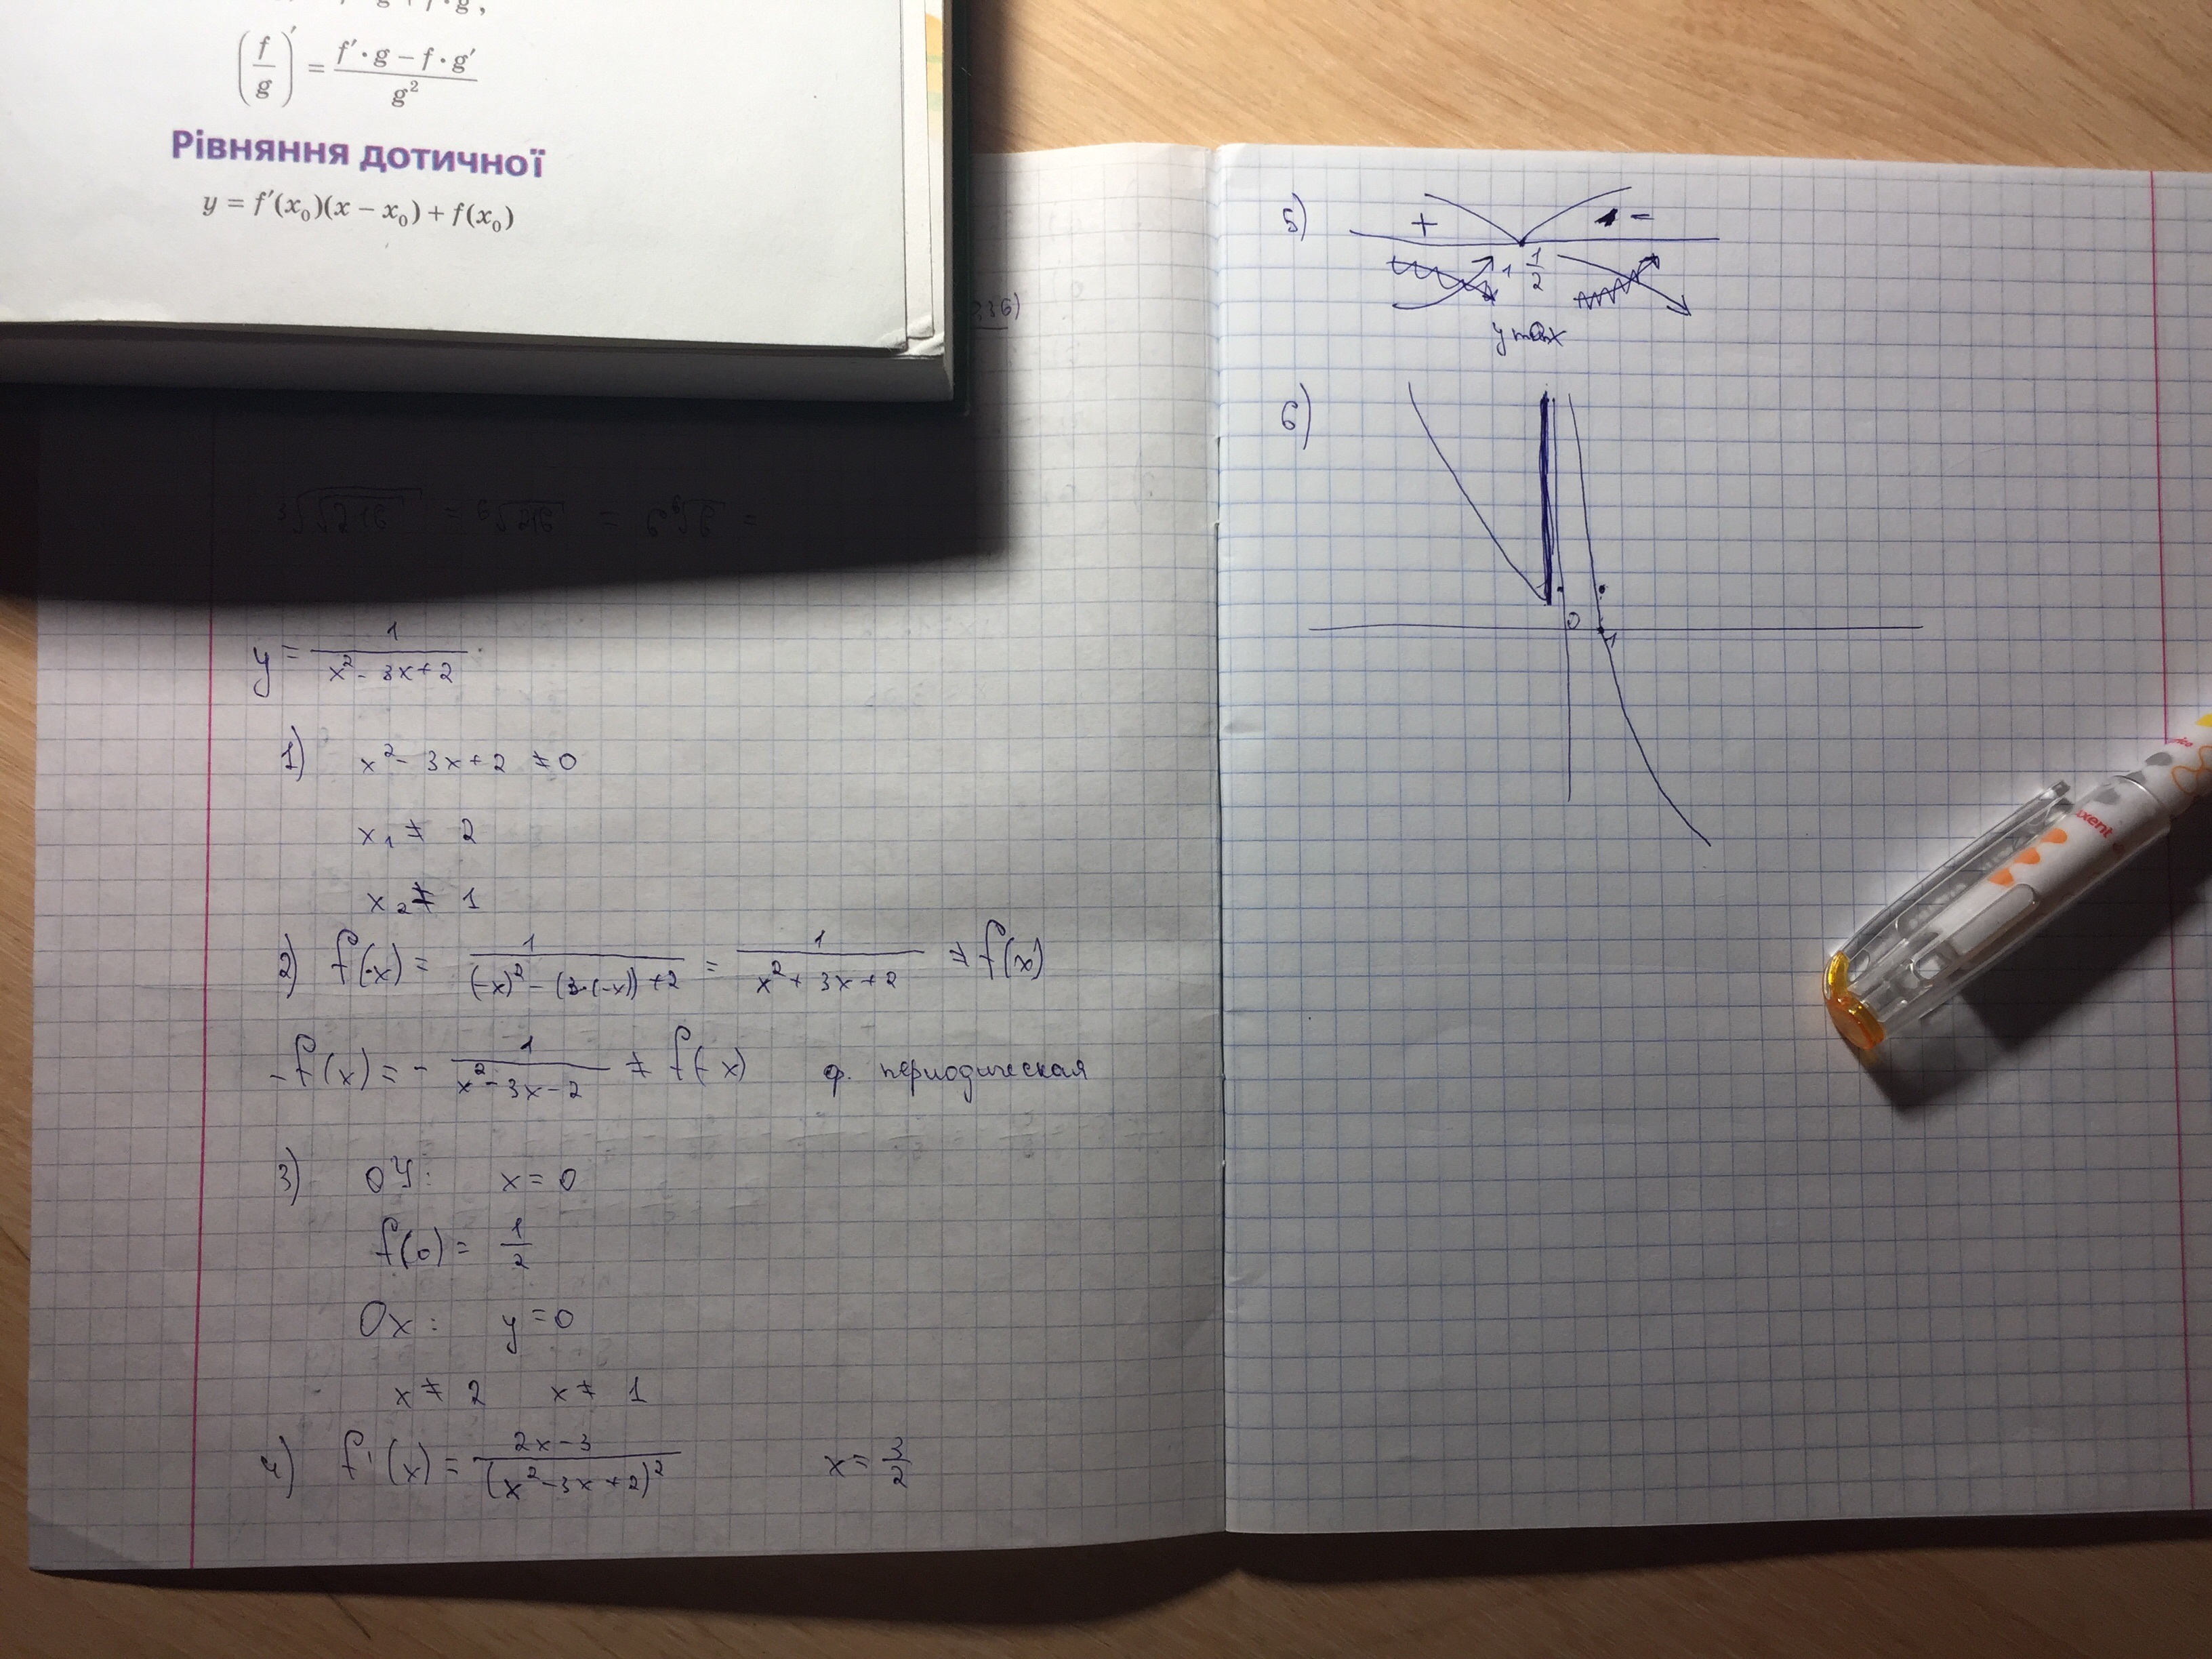 (f/g)' = (f' · g − f · g')/g²
Рівняння дотичної
y = f'(x₀)(x − x₀) + f(x₀)
∛√216 = ⁶√216 = 6 ⁶√6 =
y = 1/(x² - 3x + 2)
1) x² - 3x + 2 ≠ 0
x₁ ≠ 2
x₂ ≠ 1
2) f(-x) = 1/((-x)² - (3·(-x)) + 2) = 1/(x² + 3x + 2) ≠ f(x)
-f(x) = - 1/(x² - 3x - 2) ≠ f(-x) ф. периодическая
3) OY: x = 0
f(0) = 1/2
Ox: y = 0
x ≠ 2 x ≠ 1
4) f'(x) = (2x - 3)/(x² - 3x + 2)² x = 3/2
5) + -
1 1/2
y max
6)
0
1
xent